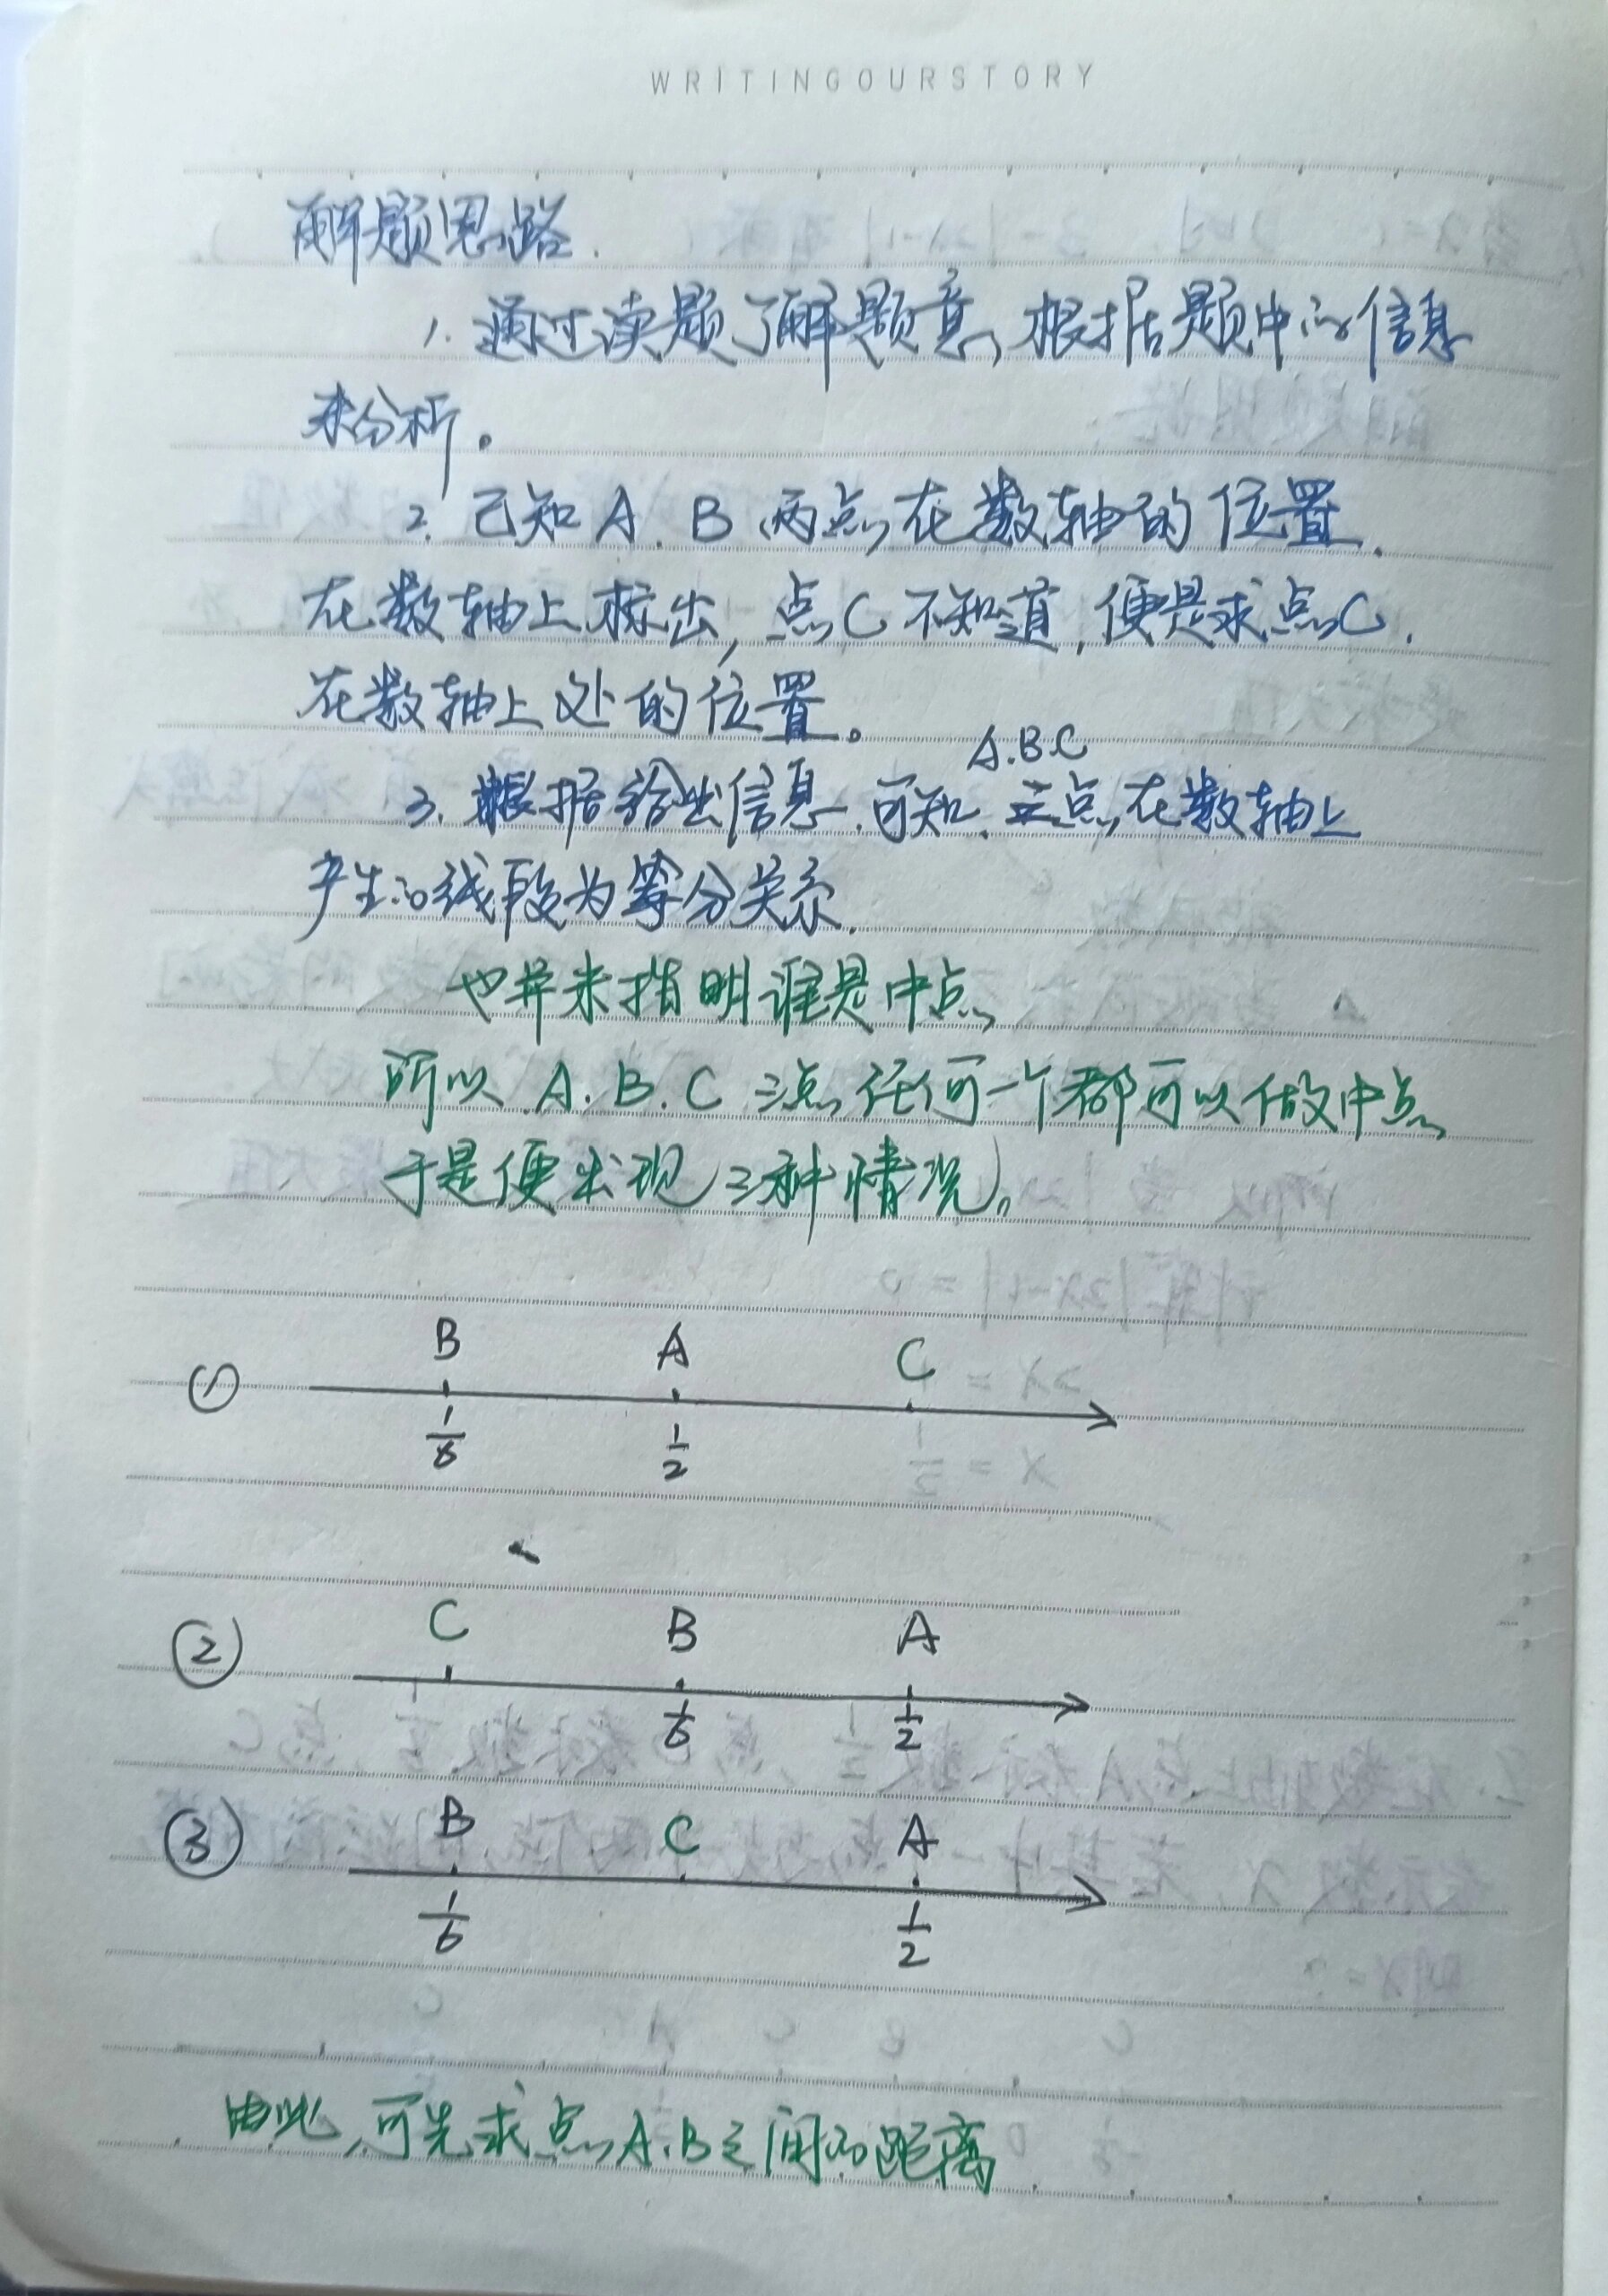 WRITINGOURSTORY
解题思路.
1. 通过读题了解题意, 根据题中的信息
来分析。
2. 已知A、B两点在数轴的位置.
在数轴上标出, 点C不知道, 便是求点C.
在数轴上处的位置。
A.B.C
3. 根据给出信息, 可知. 三点, 在数轴上
产生的线段为等分关系.
也并未指明谁是中点,
所以 A.B.C 三点, 任何一个都可以做中点,
于是便出现3种情况。
B A C
①
1/6 1/2
C B A
②
1/6 1/2
B C A
③
1/6 1/2
由此, 可先求点A.B之间的距离